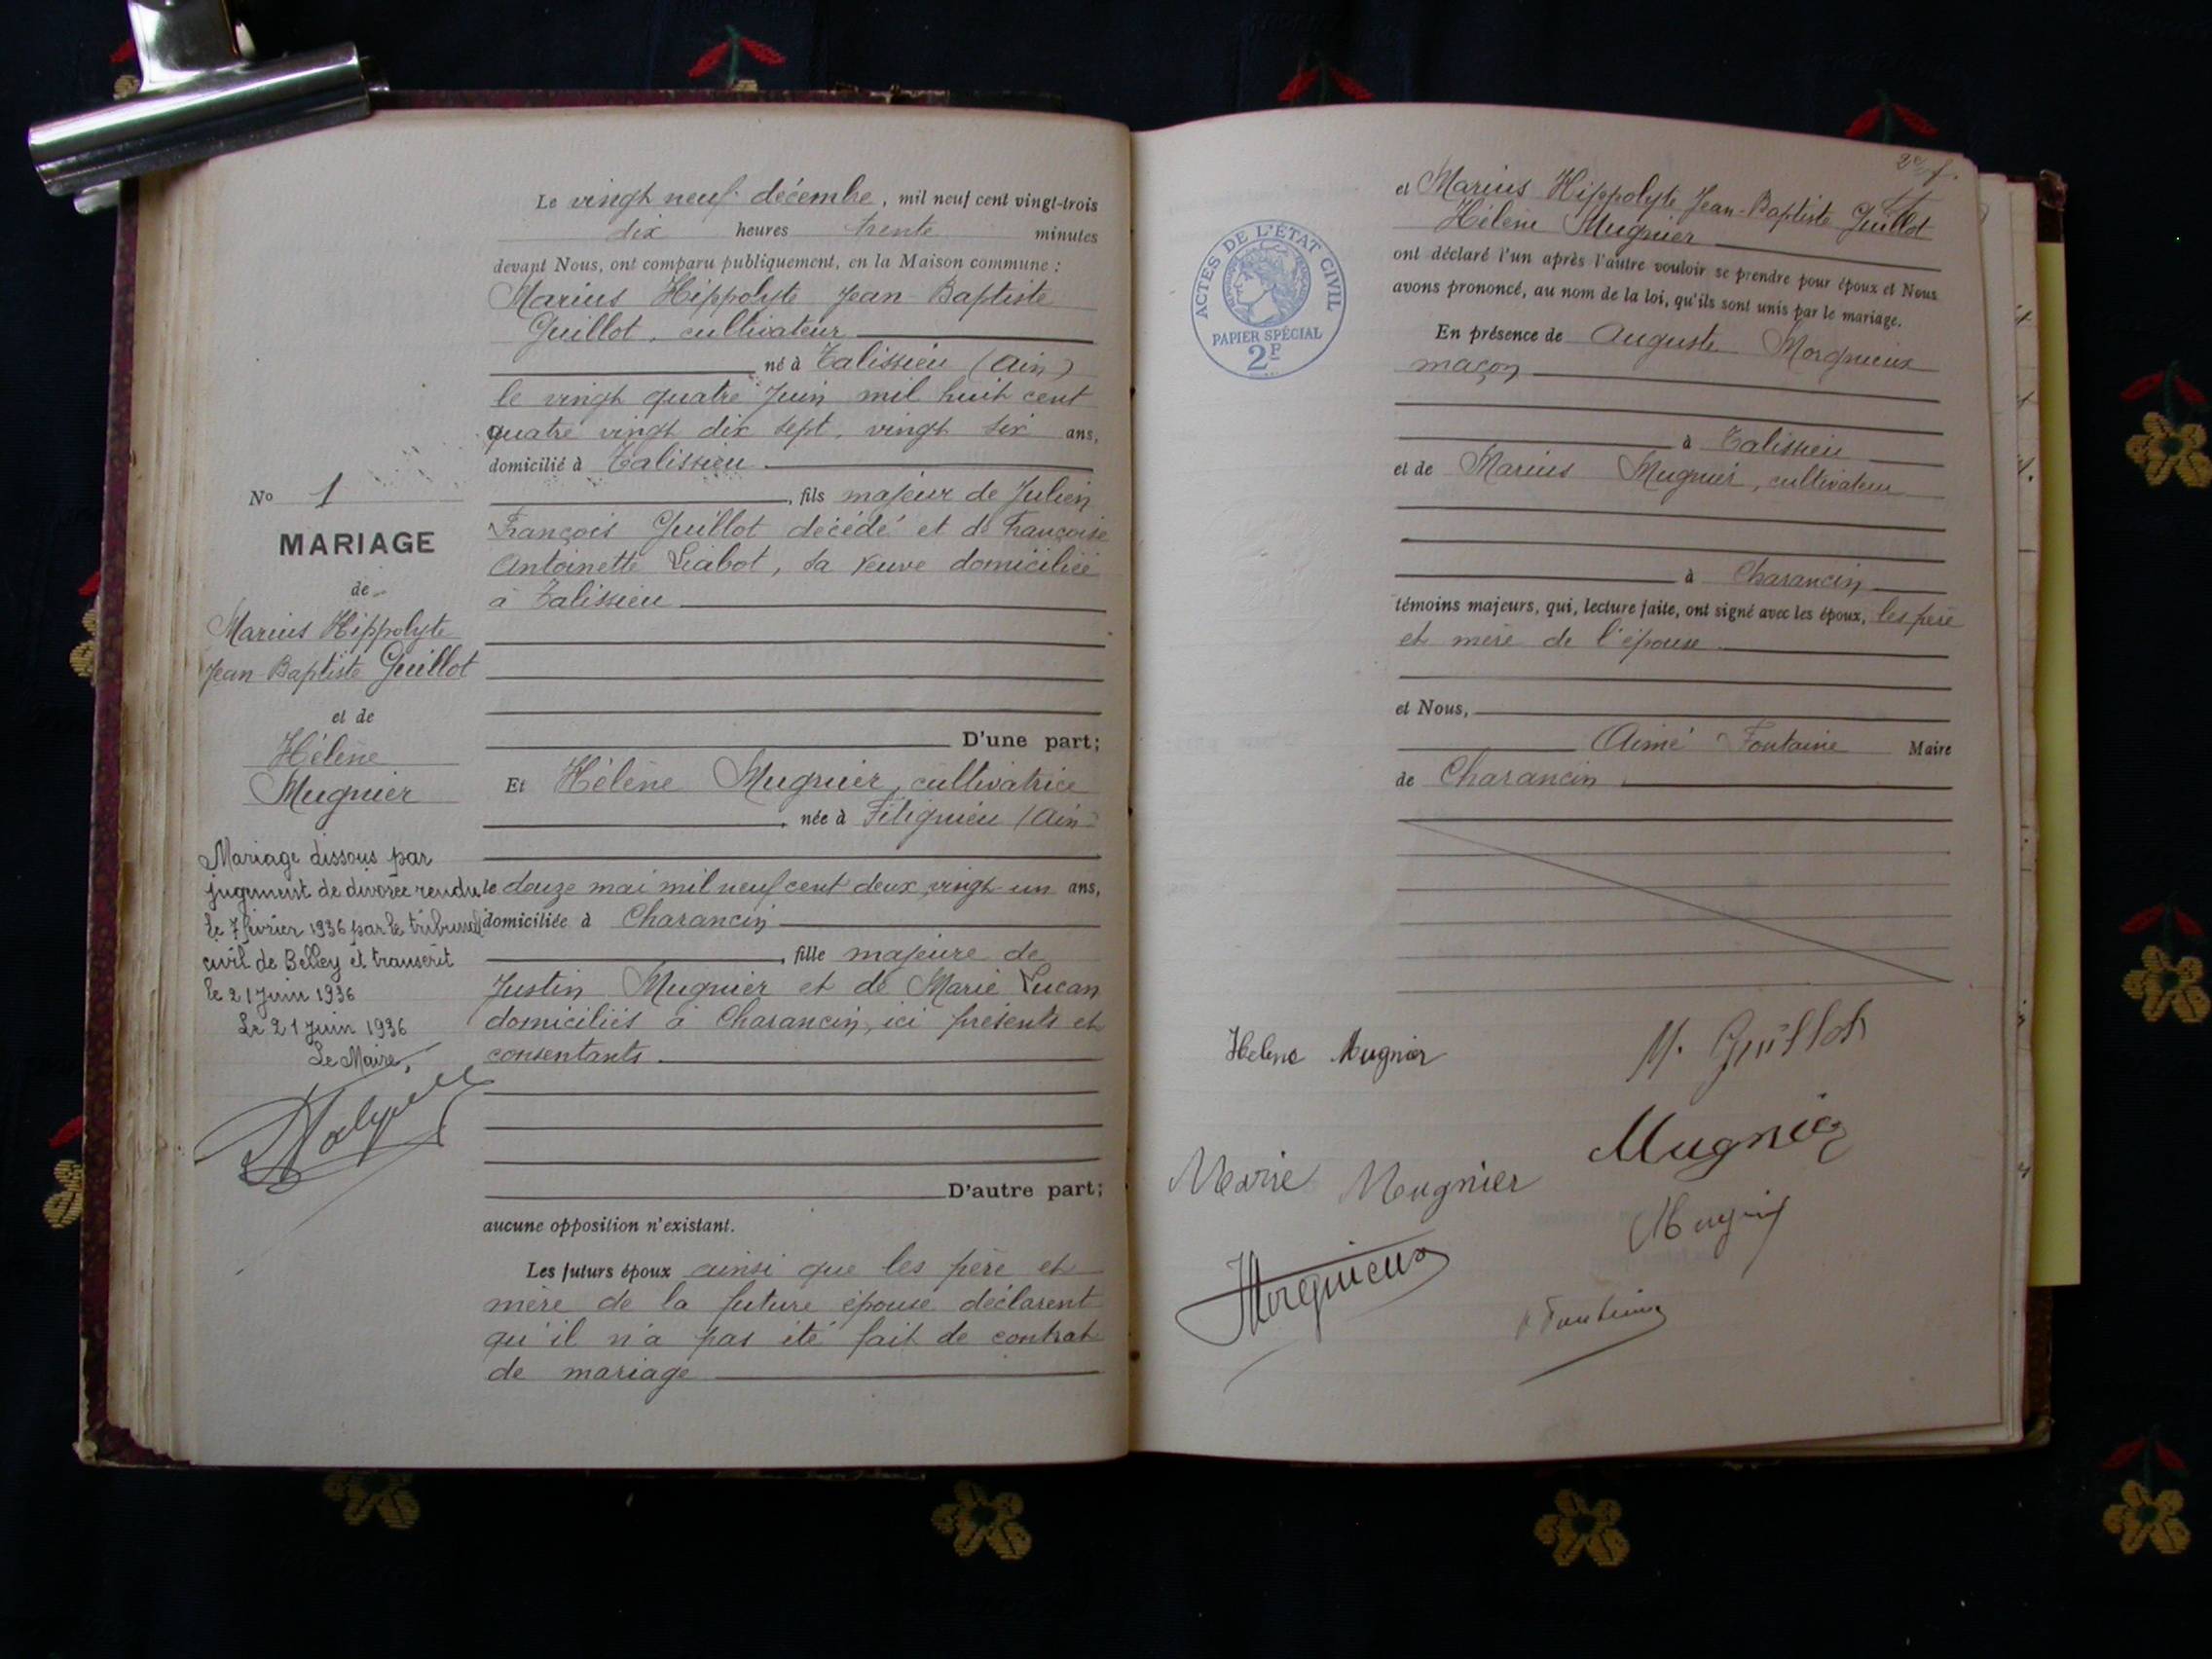 Le vingt neuf décembre, mil neuf cent vingt-trois
dix heures trente minutes
devant Nous, ont comparu publiquement, en la Maison commune :
Marius Hippolyte Jean-Baptiste
Guillot, cultivateur
né à Talissieu (Ain)
le vingt quatre Juin mil huit cent
quatre vingt dix sept, vingt six ans,
domicilié à Talissieu
, fils majeur de Julien
François Guillot décédé et de Françoise
Antoinette Liabot, sa veuve domiciliée
à Talissieu
D'une part;
Et Hélène Mugnier, cultivatrice
, née à Fitignieu (Ain)
le douze mai mil neuf cent deux, vingt-un ans,
domiciliée à Charancin
, fille majeure de
Justin Mugnier et de Marie Lucan
domiciliés à Charancin, ici présents et
consentants
D'autre part;
aucune opposition n'existant.
Les futurs époux ainsi que les père et
mère de la future épouse déclarent
qu'il n'a pas été fait de contrat
de mariage
No 1
MARIAGE
de
Marius Hippolyte
Jean-Baptiste Guillot
et de
Hélène
Mugnier
Mariage dissous par
jugement de divorce rendu
le 7 février 1936 par le tribunal
civil de Belley et transcrit
le 21 Juin 1936
Le 21 Juin 1936
Le Maire,
ACTES DE L'ÉTAT CIVIL
PAPIER SPÉCIAL
2F
2e f.
et Marius Hippolyte Jean-Baptiste Guillot
Hélène Mugnier
ont déclaré l'un après l'autre vouloir se prendre pour époux et Nous
avons prononcé, au nom de la loi, qu'ils sont unis par le mariage.
En présence de Auguste Morgnieux
maçon
à Talissieu
et de Marius Mugnier, cultivateur
à Charancin
témoins majeurs, qui, lecture faite, ont signé avec les époux, les père
et mère de l'épouse
et Nous,
Aimé Fontaine Maire
de Charancin
Helene Mugnier M. Guillot
Mugnier
Marie Mugnier
Mugnier
Morgnieux
Fontaine